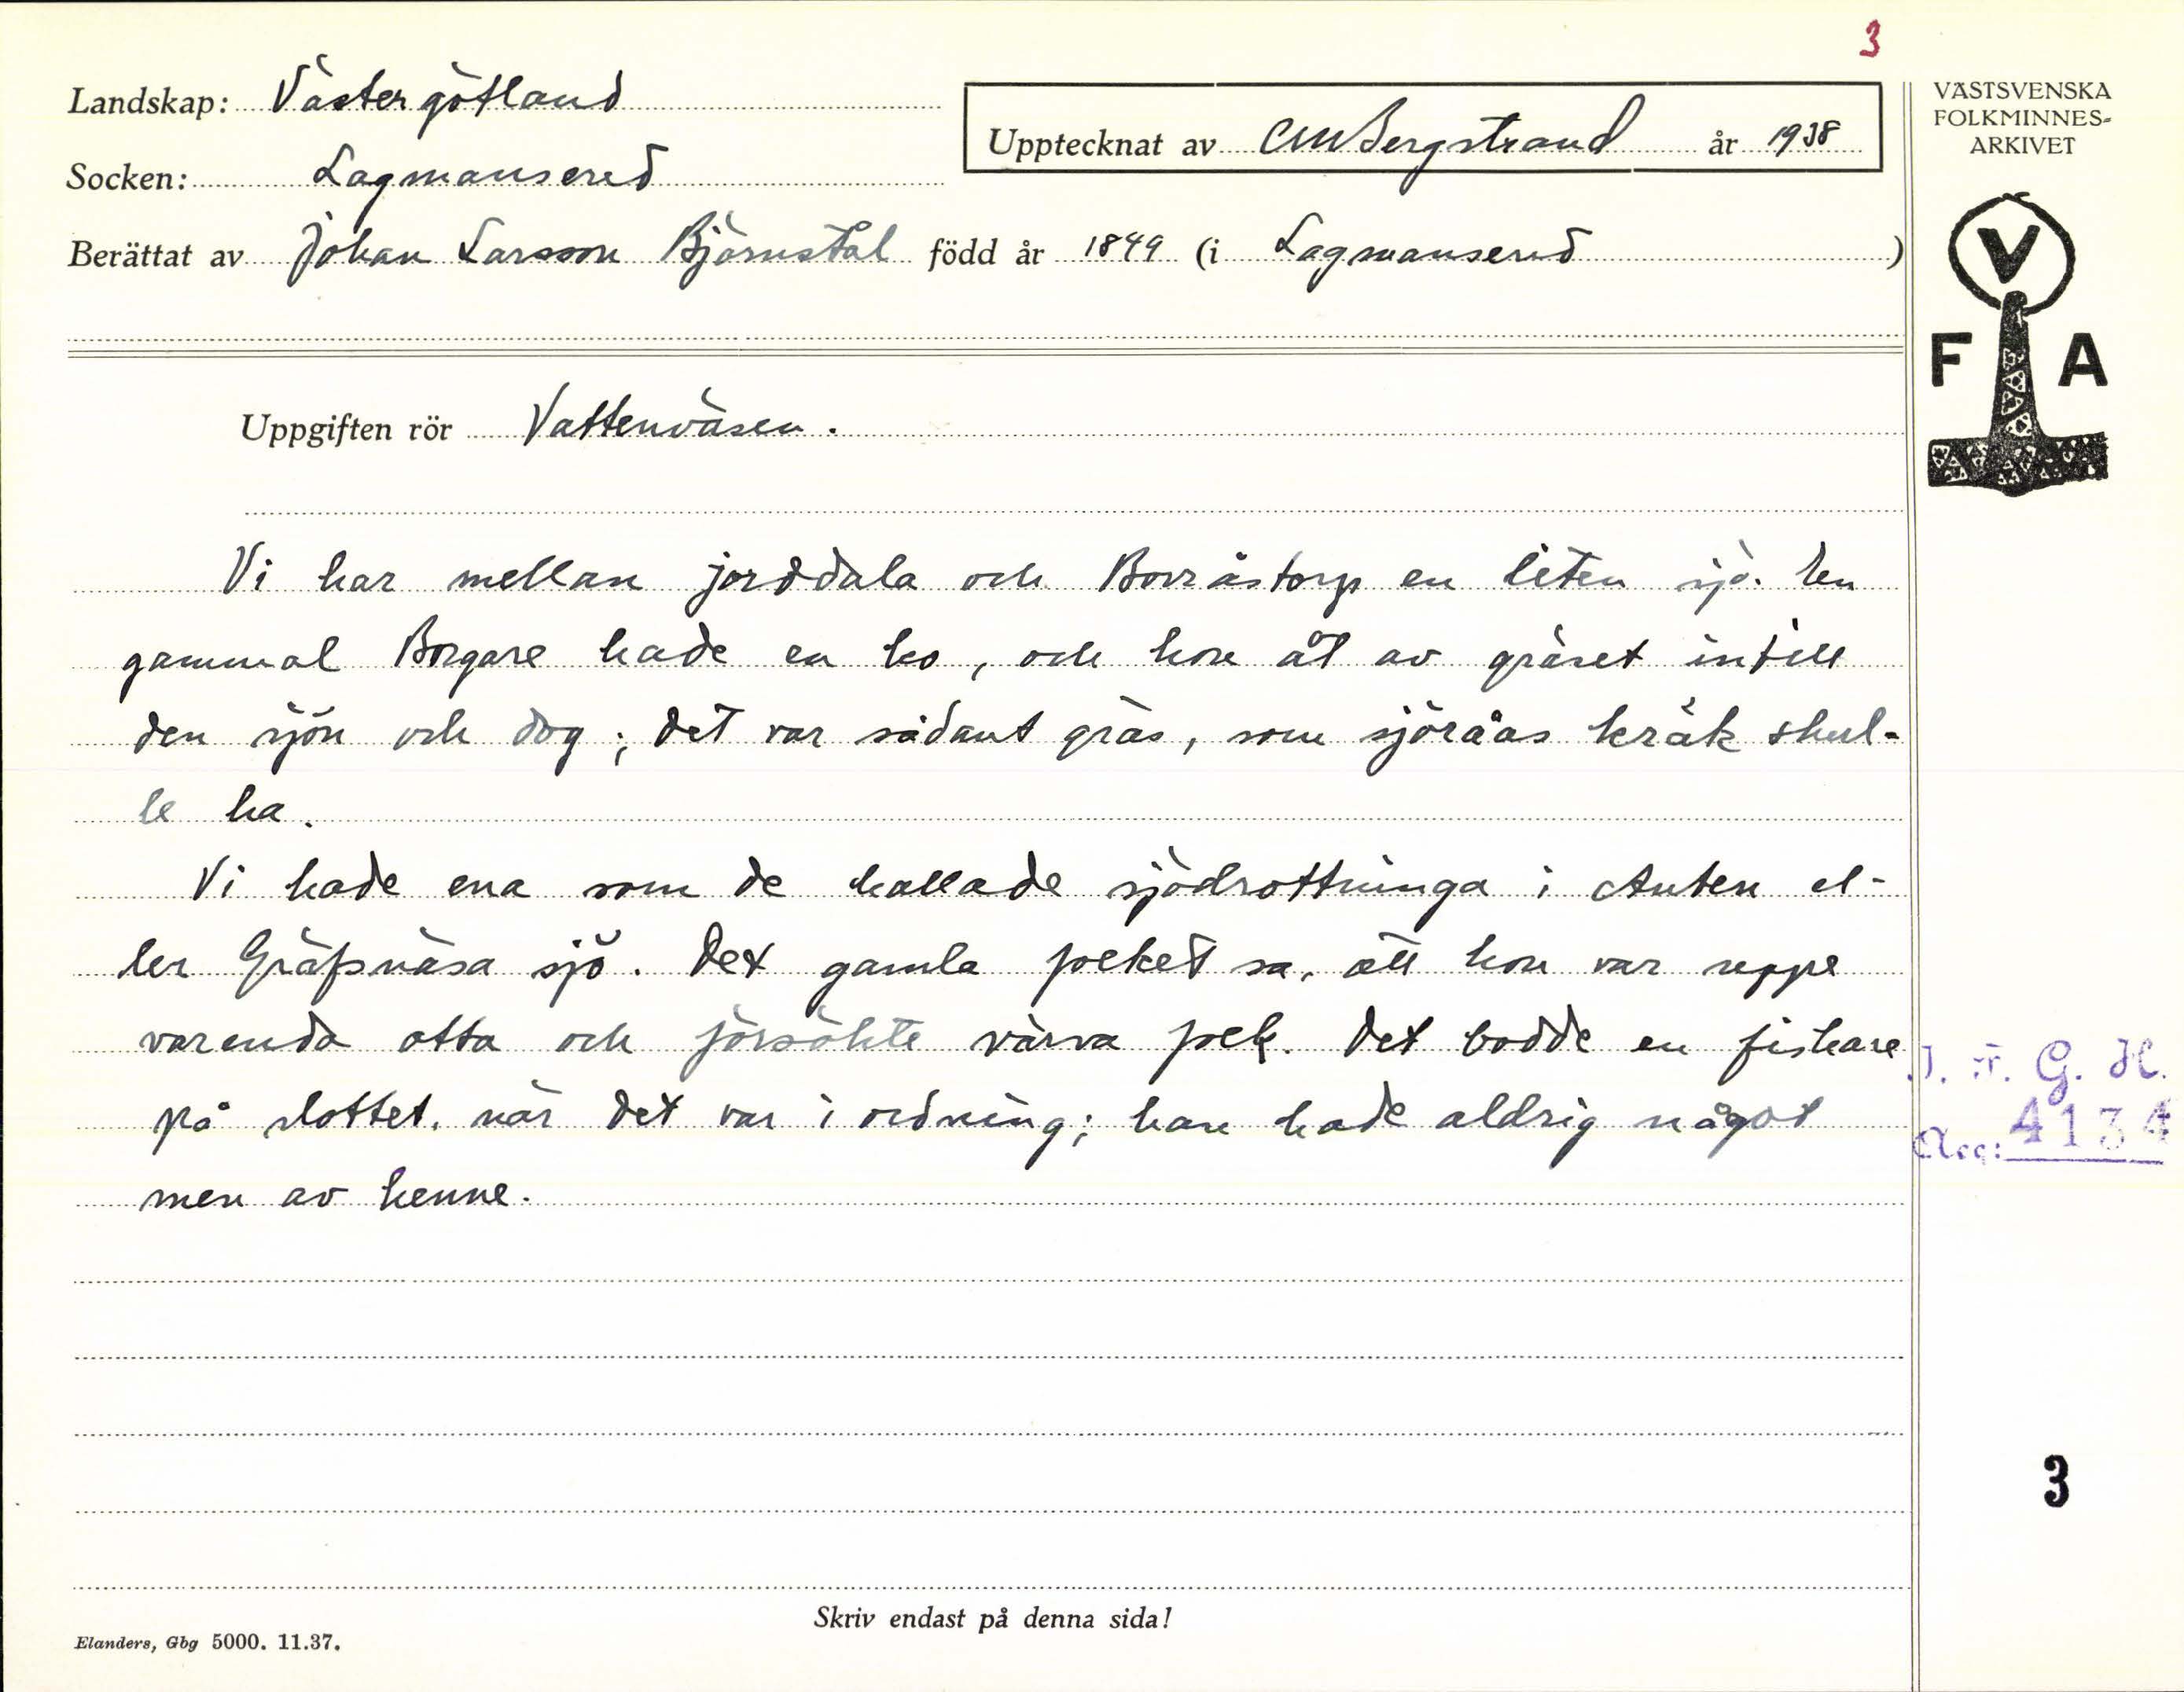 3
Landskap: Västergötland
Upptecknat av CMBergstrand år 1938
VÄSTSVENSKA
FOLKMINNES-
ARKIVET
Socken: Lagmansered
Berättat av Johan Larsson Björnstal född år 1849 (i Lagmansered )
V
F A
Uppgiften rör Vattenväsen.
Vi har mellan jorddala och Borråstorp en liten sjö. En
gammal Borgare hade en ko, och hon åt av gräset intill
den sjön och dog; det var sådant gräs, som sjöråas kräk skul-
le ha.
Vi hade ena som de kallade sjödrottninga i Anten el-
ler Gräfsnäsa sjö. Det gamla folket sa, att hon var uppe
varenda otta och försökte värva folk. Det bodde en fiskare
på slottet, när det var i ordning; han hade aldrig något
men av henne.
I. F. G. H.
Acc: 4134
3
Skriv endast på denna sida!
Elanders, Gbg 5000. 11.37.